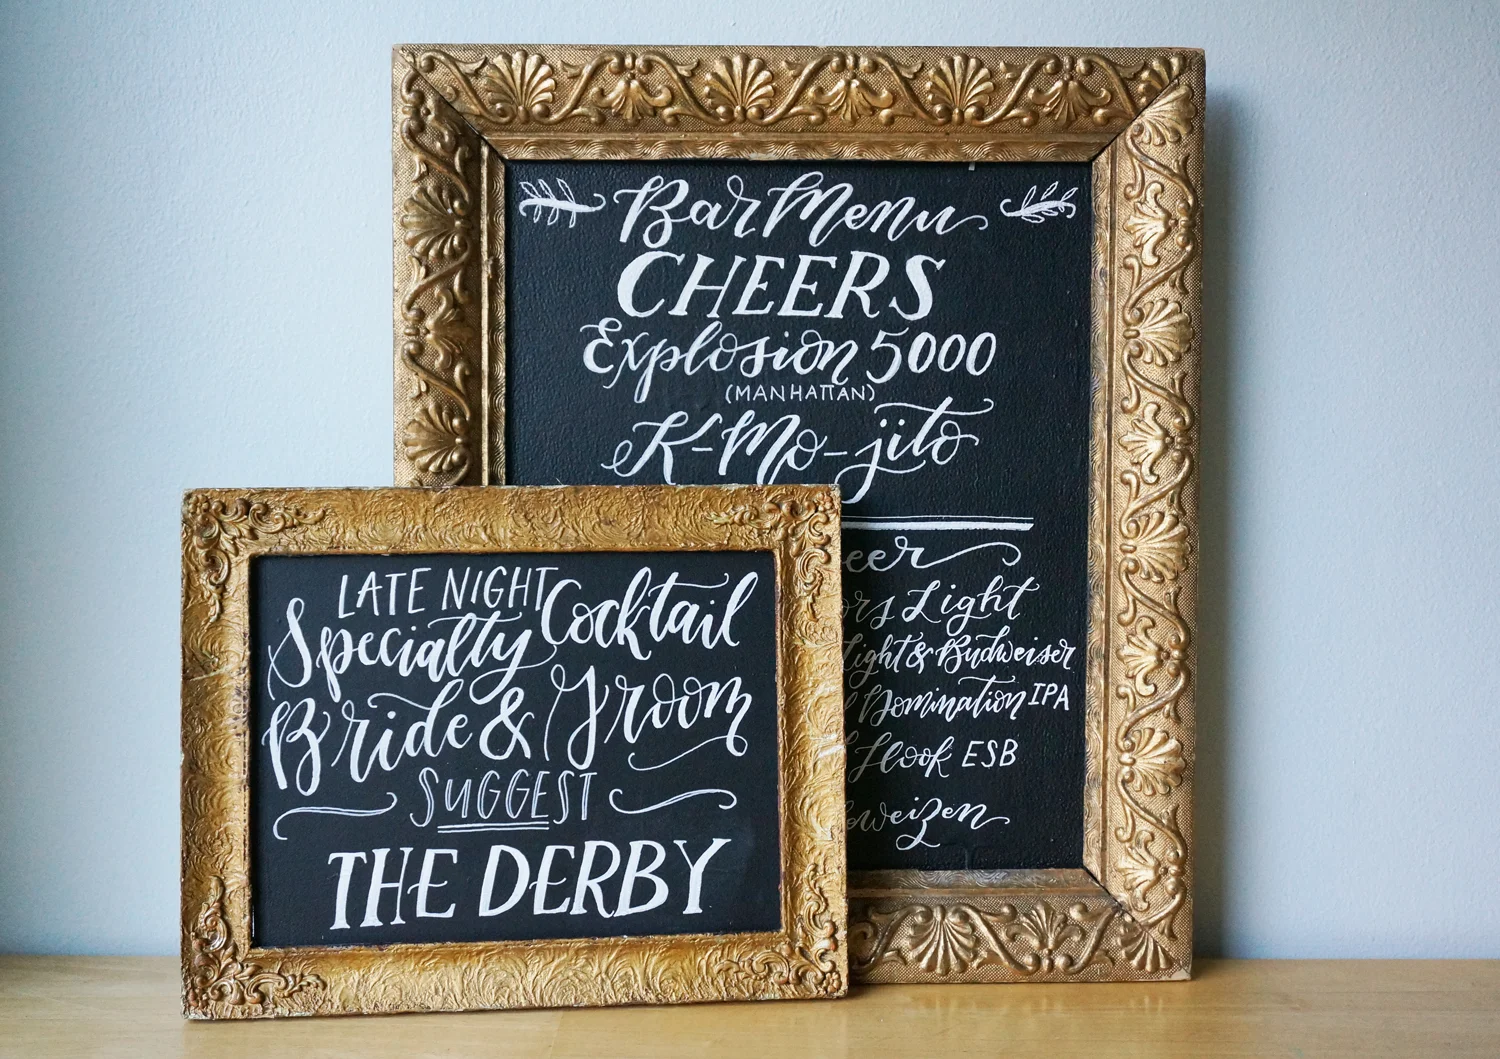 Bar Menu
CHEERS
Explosion 5000
(MANHATTAN)
K-Mo-jito
Light
Light & Budweiser
Domination IPA
Hook ESB
LATE NIGHT
Specialty Cocktail
Bride & Groom
SUGGEST
THE DERBY